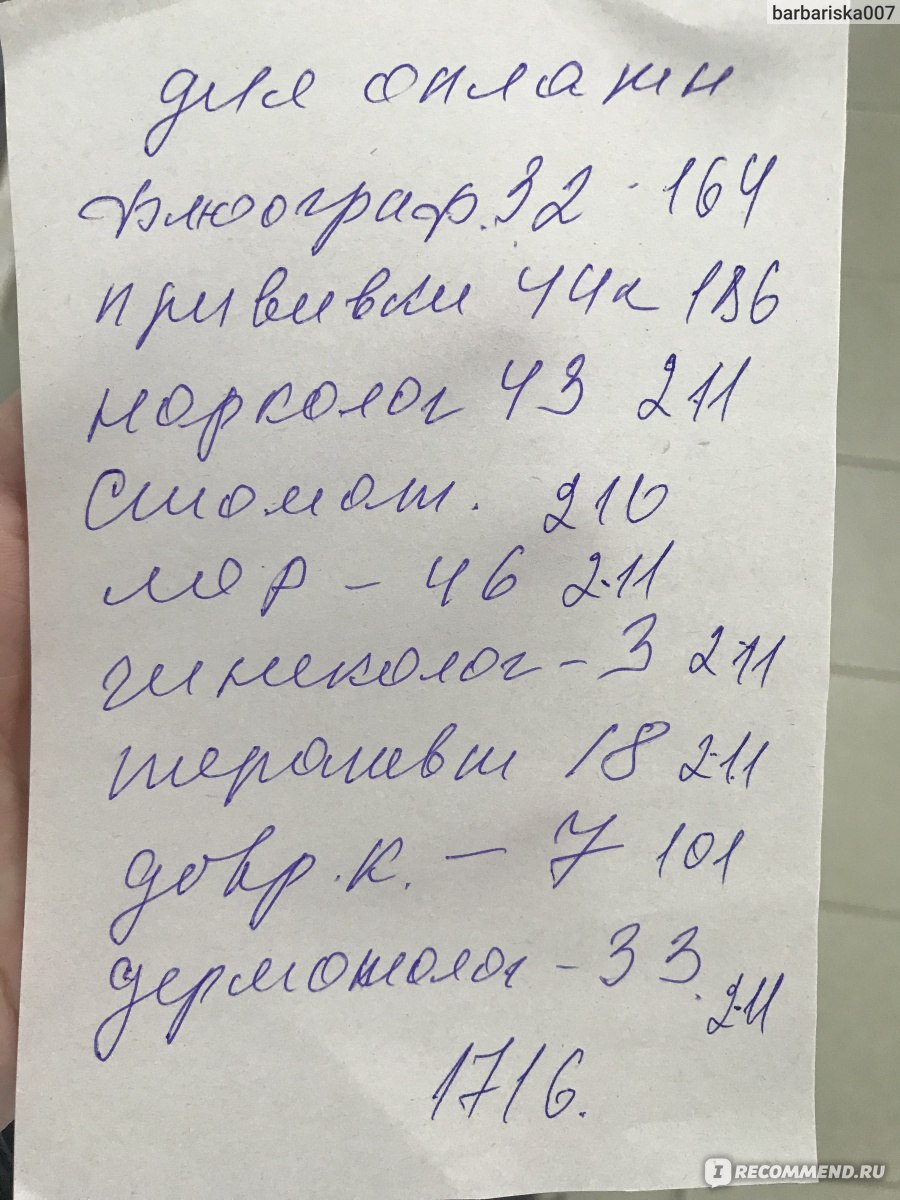 barbariska007
для оплаты
флюограф. 32 - 164
прививки 44к 186
нарколог 43 211
Стомат. 210
лор - 46 211
гинеколог - 3 211
терапевт 18 211
довр. к. - 7 101
дерматолог - 33. 211
1716.
IRECOMMEND.RU